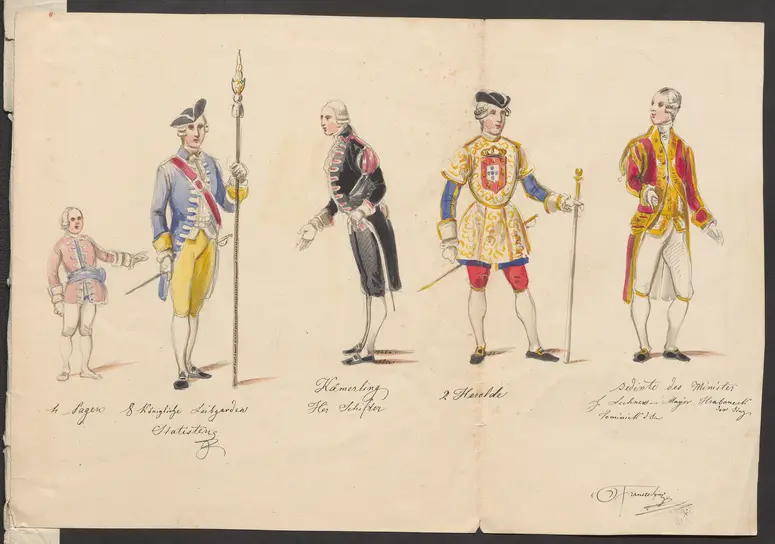 4 Pagen
8 Königliche Leibgarden
Statisten
Kämerling
Her Schifter
2 Herolde
Bediente des Minister
Lechner Mayer
Franceschini